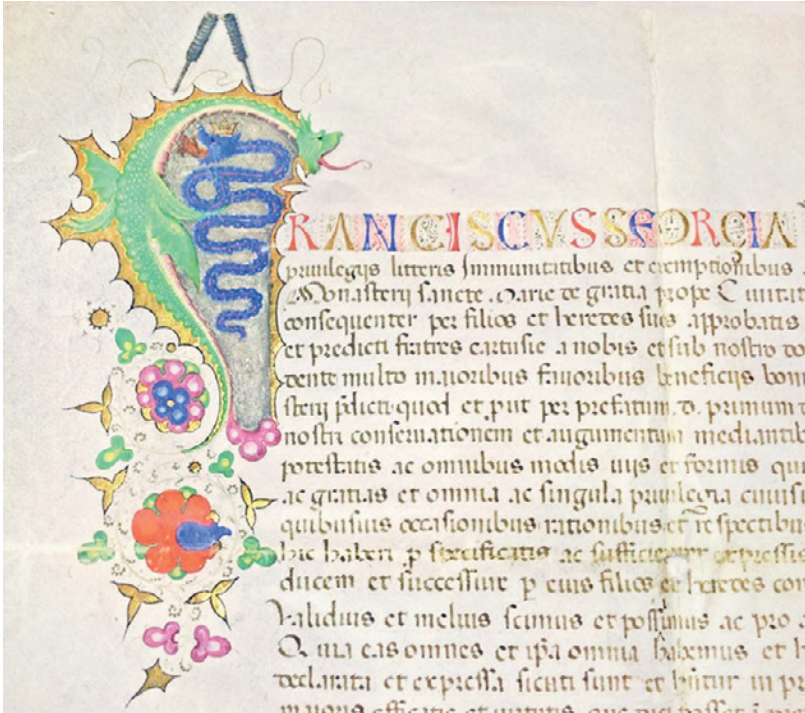 FRANCISCVS SFORCIA
privilegijs litteris Immunitatibus et exemptionibus
Monasterij sancte Marie de gratia prope Civitat
consequenter per filios et heredes suos approbatis
et predicti fratres cartusie a nobis et sub nostro do
dente multo maioribus favoribus beneficijs bon
sterij pdicti quod et put per prefatum d. primum
nostri conservationem et augumentum mediantib
potestatis ac omnibus modis viis et formis qui
ac gratias et omnia ac singula privilegia cuiusu
quibusuis occasionibus rationibus et respectibu
hic haberi p specificatis ac sufficienter expressis
ducem et successive p eius filios et heredes con
validius et melius scimus et possumus ac pro
Q uia eas omnes et ipa omnia habemus et h
declarata et expressa sicuti sunt et hntur in pr
maioris efficatie et virtutis